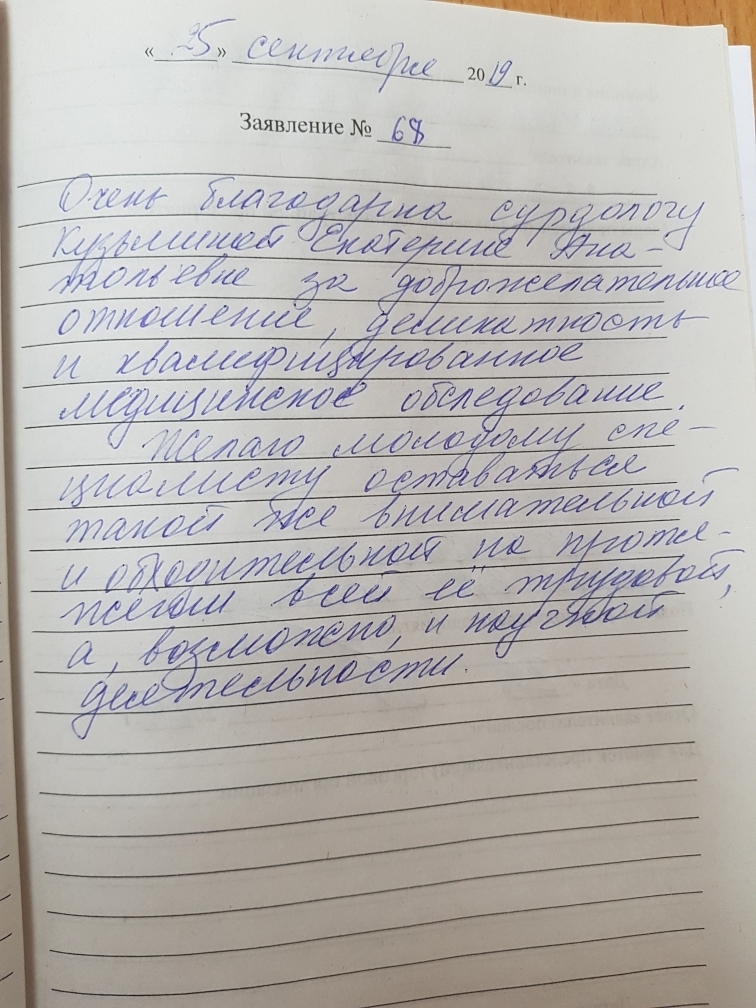 « 25 » сентября 2019 г.
Заявление № 68
Очень благодарна сурдологу
Кузьминой Екатерине Ана-
тольевне за доброжелательное
отношение, деликатность
и квалифицированное
медицинское обследование.
Желаю молодому спе-
циалисту оставаться
такой же внимательной
и обходительной на протя-
жении всей её трудовой,
а, возможно, и научной
деятельности.